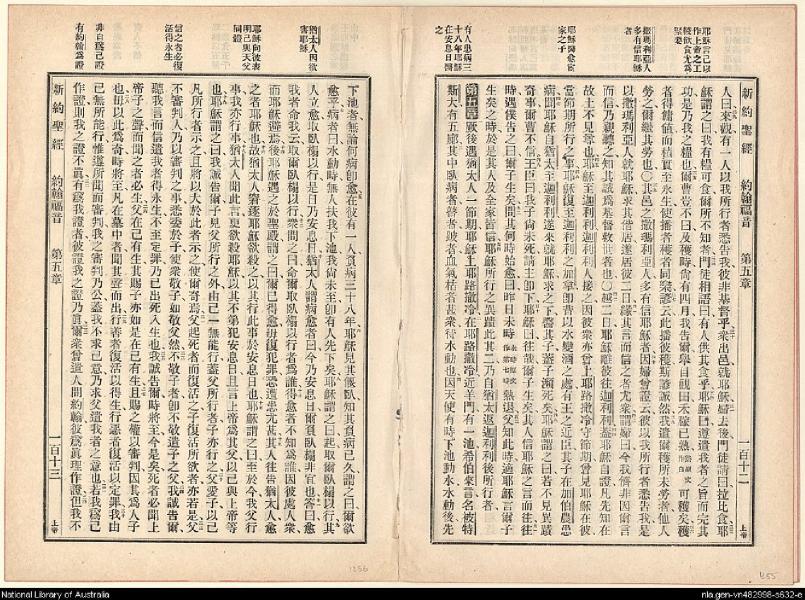 耶穌言己以
作上帝之工
救
撒瑪利亞人
多有信耶穌
者
耶穌醫愈官
家之子
有人患病三
十八年耶穌
在安息日醫
之
新約聖經 約翰福音 第五章 一百十二 上帝
人曰來觀有一人以我所行者悉告我彼非基督乎衆出邑就耶穌婦去後門徒請曰拉比食耶
穌謂之曰我有糧可食爾所不知者門徒相語曰有人供其食乎耶穌曰遵遣我者之旨而完其
功是乃我之糧也爾曹豈不曰及穫時尚有四月我告爾舉目觀田禾稼已熟 可穫矣穫
者得値而積實至永生使播者穫者同樂諺云此播彼穫斯諺誠然我遣爾穫所未勞者他人
勞之爾繼其勞也〇其邑之撒瑪利亞人多有信耶穌者因婦曾證云彼以我所行者悉告我是
以撒瑪利亞人就耶穌求其偕居遂居彼二日緣其言而信之者尤衆謂婦曰今我儕非因爾言
而信乃親聽之知其誠爲基督救世者也〇越二日耶穌離彼往迦利利蓋耶穌自證凡先知在
故土不見尊也耶穌至迦利利迦利利人接之因彼衆亦曾上耶路撒冷守節期曾見耶穌在彼
當節期所行之事耶穌復至迦利利之加拿卽昔以水變酒之處有王之近臣其子在加伯農患
病聞耶穌自猶太至迦利利遂來就耶穌求之下醫其子蓋子瀕死矣耶穌謂之曰若不見異蹟
奇事爾曹不信王臣曰我子尚未死請主卽下耶穌曰往哉爾子生矣其人信耶穌之言而往往
時遇僕告之曰爾子生矣問其何時始愈曰昨日未時 熱退父知此時適耶穌言爾子
生矣之時於是其人及全家皆信耶穌所行之異蹟此其二乃自猶太返迦利利後所行者
第五章 厥後遇猶太人一節期耶穌上耶路撒冷耶路撒冷近羊門有一池希伯來言名被特
斯大有五廊其中臥病者瞽者跛者血氣枯者甚衆待水動也因天使有時下池動水水動後先
猶太人因欲
害耶穌
耶穌向彼表
明己與天父
同體
信之者必復
活得永生
非自爲己證
有約翰爲證
新約聖經 約翰福音 第五章 一百十三 上帝
下池者無論何病卽愈在彼有一人負病三十八年耶穌見其偃臥知其負病已久謂之曰爾欲
愈乎病者曰水動時無人扶我下池我尚未至卽有人先下矣耶穌謂之曰起取爾臥榻以行其
人立愈取臥榻以行是日乃安息日猶太人謂病愈者曰今乃安息日爾負臥榻非宜也答曰愈
我者命我云取爾臥榻以行衆問之曰命爾取臥榻以行者爲誰得愈者不知爲誰因彼處人衆
而耶穌避焉後耶穌遇之於聖殿謂之曰爾已得愈毋復犯罪恐遭患尤甚其人往告猶太人愈
之者耶穌也故猶太人窘逐耶穌欲殺之以其行此事於安息日也耶穌謂之曰至於今我父行
事我亦行事猶太人聞此言更欲殺耶穌以其不第犯安息日且言上帝爲其父以己與上帝等
也耶穌謂之曰我誠告爾子見父所行之外由己一無能行蓋父所行者子亦行之父愛子以己
凡所行者示之且將以大於此者示之使爾奇焉父起死者而復活之子復活所欲者亦若是父
不審判人乃以審判之事悉委於子使衆敬子如敬父然不敬子者卽不敬遣子之父我誠告爾
聽我言而信遣我者得永生不至定罪乃已出死入生也我誠告爾時將至今是矣死者必聞上
帝子之聲而聞之者必生父在己有生其賜子亦如是在己有生且賜之權以審判因其爲人子
也毋以此爲奇時將至凡在墓中者聞其聲而出行善者復活以得生行惡者復活以定罪我由
己無所能行惟遵所聞而審判我之審判乃公蓋我不求己意乃求父遣我者之意也若我爲己
作證則我之證不眞有爲我證者彼證我之證乃眞爾衆曾遣人問約翰彼爲眞理作證但我不
1256
1255
National Library of Australia
nla.gen-vn482998-s632-e